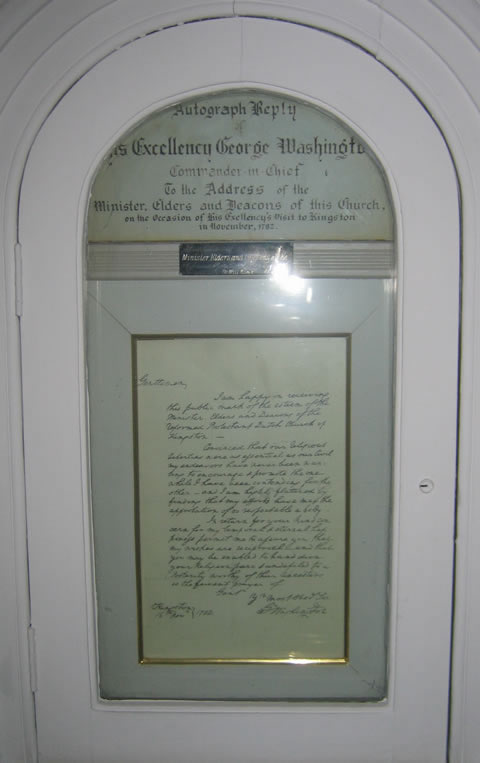 Autograph Reply
of
His Excellency George Washington
Commander-in-Chief
To the Address of the
Minister, Elders and Deacons of this Church,
on the Occasion of His Exellency's Visit to Kingston
in November, 1782.
Minister Elders and
Gentlemen,
I am happy in receiving
this public mark of the esteem of the
Minister, Elders and Deacons of the
Reformed Protestant Dutch Church of
Kingston —
Convinced that our Religious
Liberties were as essential as our Civil
my endeavors have never been wan-
ting to encourage & promote the one
while I have been contending for the
other — and I am highly flattered by
finding that my efforts have met the
approbation of so respectable a body.
In return for your kind con-
cern for my temporal & eternal hap-
piness permit me to assure you that
my wishes are reciprocal — and that
you may be enabled to hand down
your Religion pure & undefiled to a
Posterity worthy of their Ancestors
is the fervent prayer of
Gent
Yr. Most Obed. Ser
G Washington
Kingston
Nov 1782